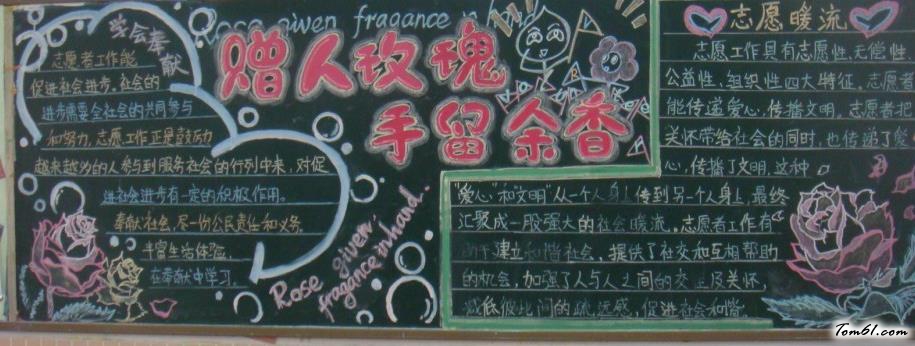 Rose given fragance in hand
学会奉献
志愿者工作能
促进社会进步。社会的
进步需要全社会的共同参与
和努力。志愿工作正是鼓励
越来越多的人参与到服务社会的行列中来，对促
进社会进步有一定的积极作用。
奉献社会，尽一份公民责任和义务。
丰富生活体验。
在奉献中学习。
赠人玫瑰
手留余香
Rose given,
fragance in hand.
志愿暖流
志愿工作具有志愿性、无偿性、
公益性、组织性四大特征。志愿者
能传递爱心，传播文明，志愿者把
关怀带给社会的同时，也传递了爱
心，传播了文明，这种
"爱心"和"文明"从一个人身上传到另一个人身上，最终
汇聚成一股强大的社会暖流。志愿者工作有
助于建立和谐社会，提供了社交和互相帮助
的机会，加强了人与人之间的交往及关怀，
减低彼此间的疏远感，促进社会和谐。
Tom61.com